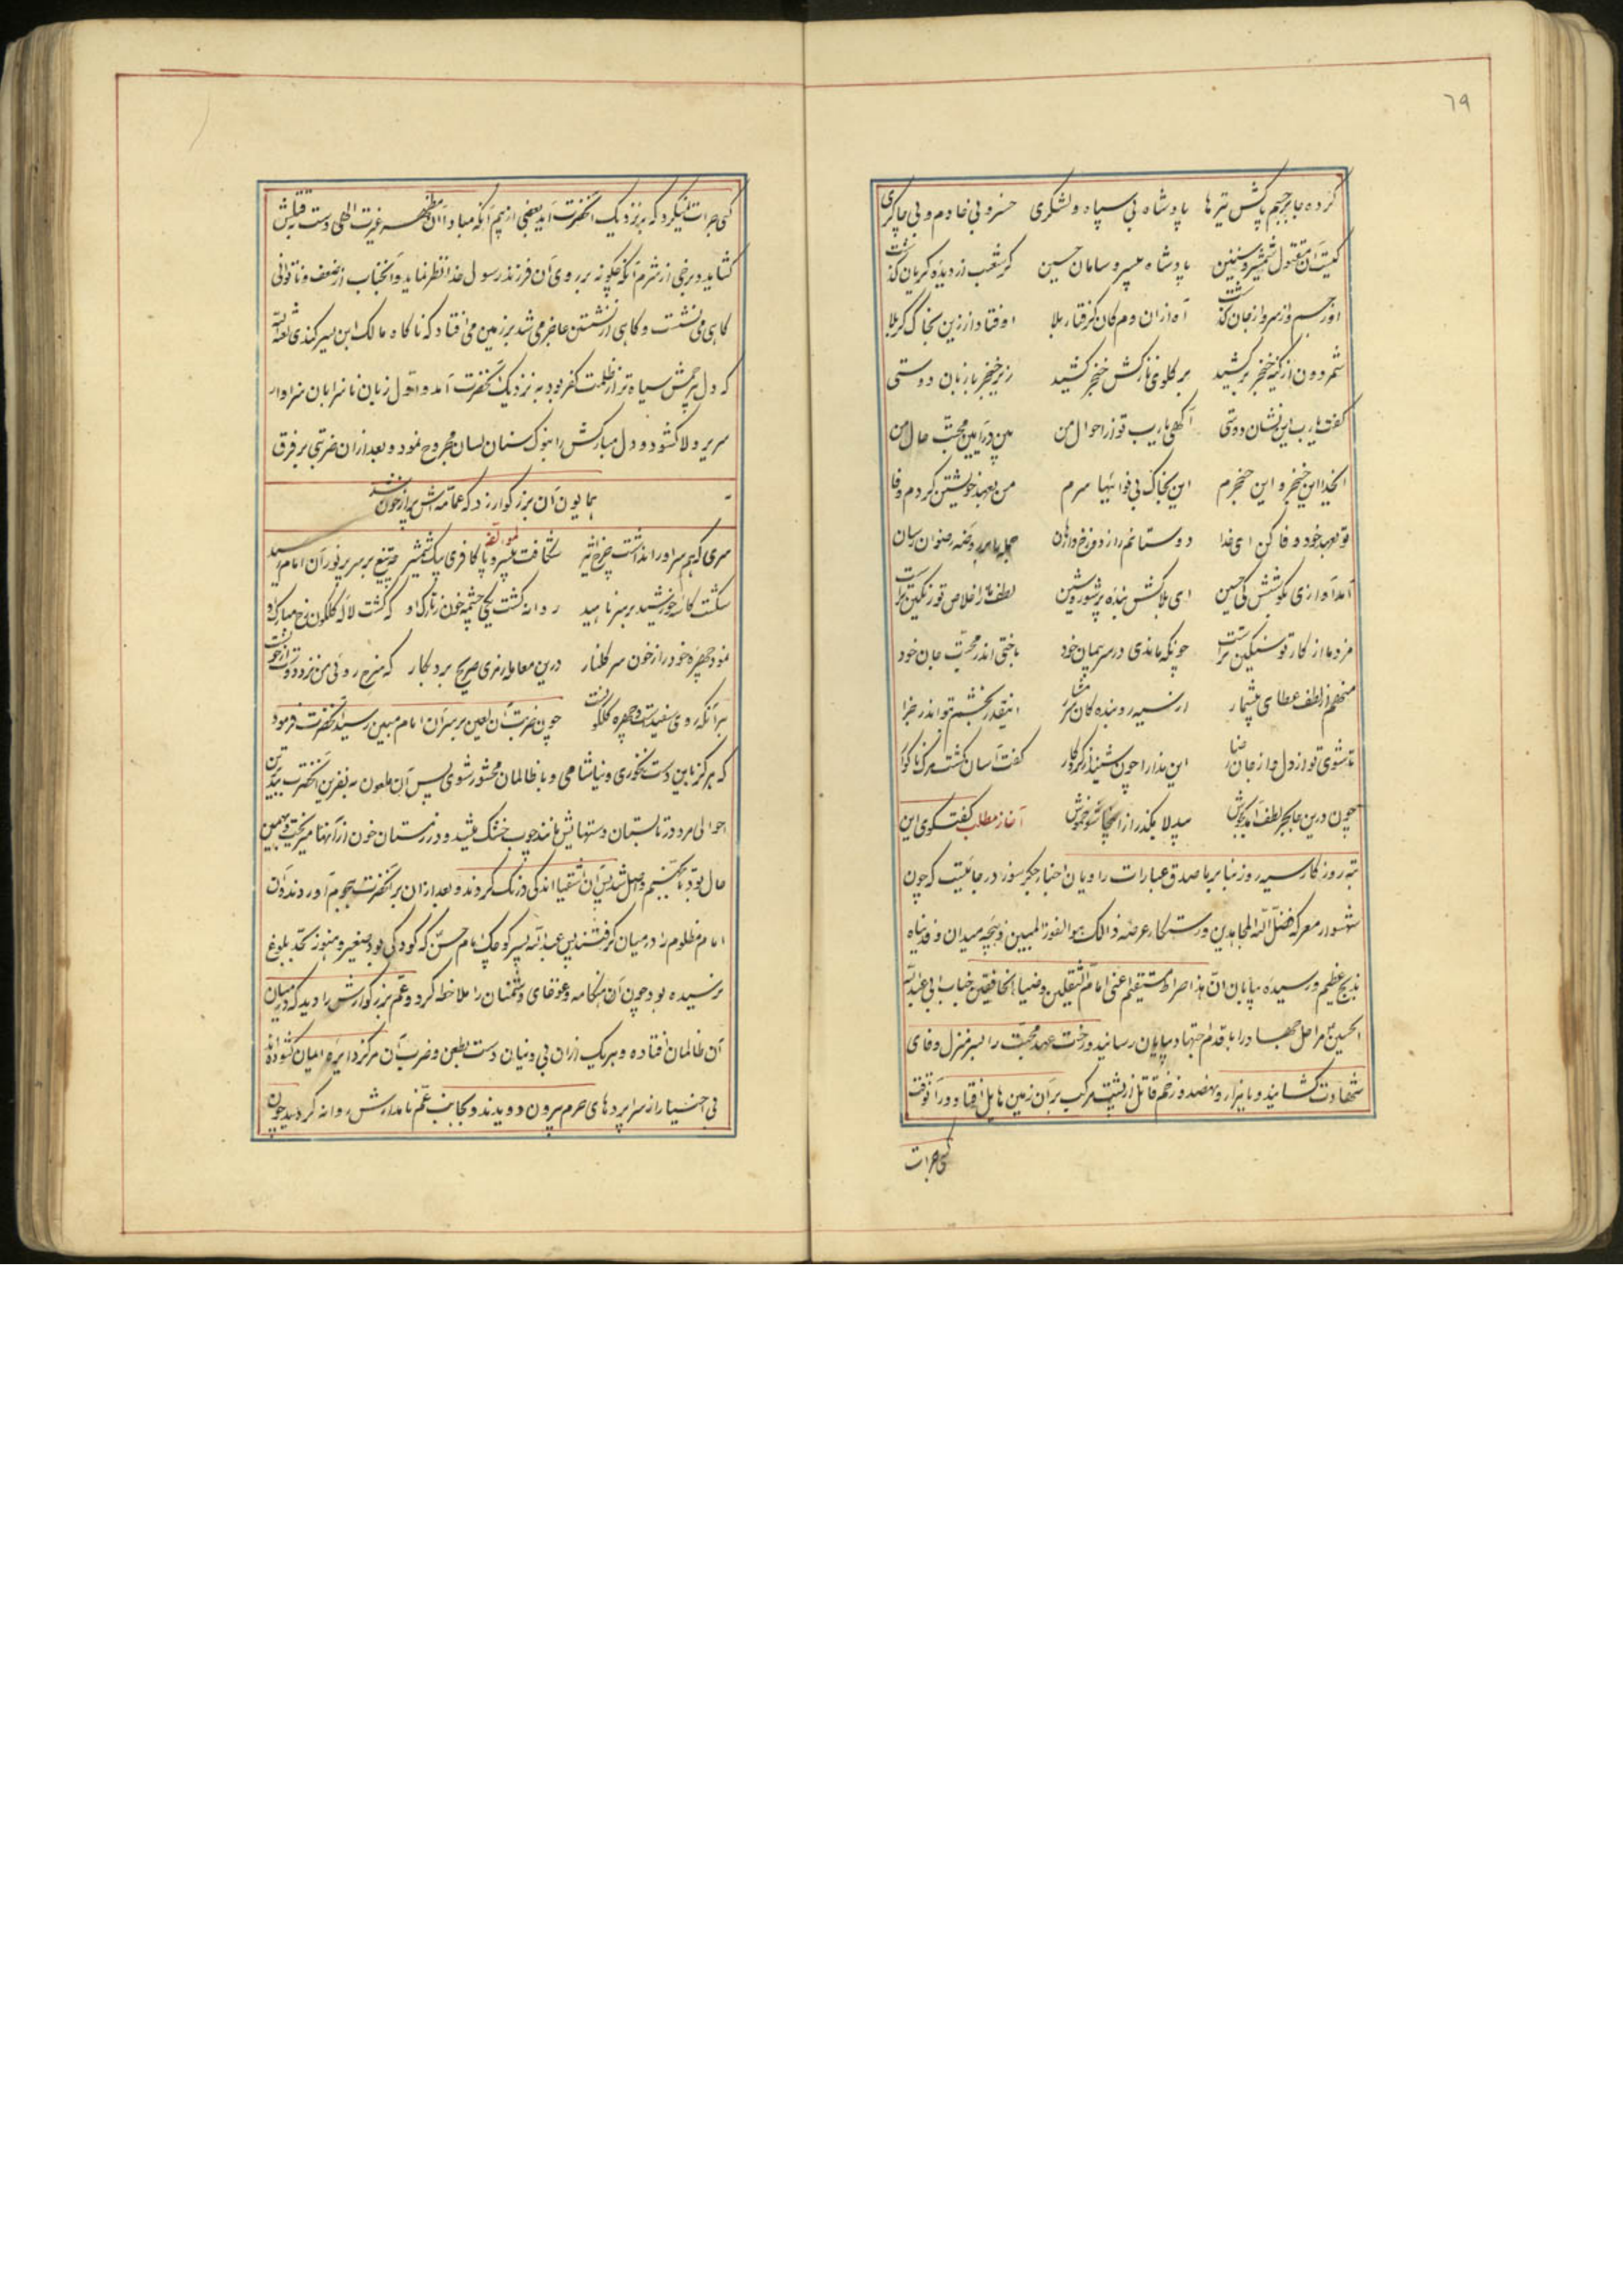 ٦٩
کرده جا بر جسم پاکش تیرها پادشاه بی سپاه و لشکری خسرو بی خادم و بی چاکری
کیست آن مقتول شمشیر و سنین پادشاه بی سر و سامان حسین کز شعب از دیده گریان گذشت
او ز جسم و از سر و از جان گذشت آه از آن دم کان گرفتار بلا اوفتاد از زین بخاک کربلا
شمر دون از کینه خنجر برکشید بر گلوی نازکش خنجر کشید زیر خنجر با زبان دوستی
گفت یارب این نشان دوستی آگهی یارب تو از احوال من بین در آیین محبت حال من
ایخدا این خنجر و این حنجرم این بخاک بی‌فوائیها سرم من بعهد خویشتن کردم وفا
تو بعهد خود وفا کن ای خدا دوستانم را ز دوزخ وارهان جمله را بر روضه رضوان رسان
آمد آوازی بگوشش کی حسین ای بلاکش بنده پر شور و شین لطف ما ز اخلاص تو رنگین‌تر است
مزد ما از کار تو سنگین‌تر است چونکه ماندی در سر پیمان خود باختی اندر محبت جان خود
منهم از لطف عطای بیشمار از سیه رو بنده کان
اینقدر بخشم تو را اندر جزا تا شوی تو از دل و از جان رضا
این ندا را چون شنید از کردگار گفت آسان گشت مرگ ناگوار
چون درین جا بحر لطف آمد بجوش بیدلا بگذر از اینجا شو خموش آغاز مطلب گفتگوی این
تبه روزگار سیه روز بنا بر با صدق عبارات راویان اخبار جگر سوز در جائیست که چون
شهسوار معرکه فضل الله المجاهدین و رستگار عرضه ذالک هو الفوز المبین و نخجیر میدان و فدیناه
بذبح عظیم و رسیده بپایان ان هذا صراط مستقیم اعنی امام الثقلین و ضیاء الخافقین جناب ابی عبدالله
الحسین مراحل جهاد را با قدم اجتهاد بپایان رسانید و رخت عهد محبت را بسر منزل وفای
شهادت کشانید و با هزار و نهصد و زخم قاتل از پشت مرکب بر آن زمین هایل افتاد و در آنوقت
کسی جرات
کسی جرات نمیکرد که بنزدیک آنحضرت آید بعضی از بیم آنکه مبادا آن مظهر غیرت الهی دست بقتلش
گشاید و برخی از شرم آنکه چگونه بر روی آن فرزند رسول خدا نظر نماید و آنجناب از ضعف و ناتوانی
گاهی می‌نشست و گاهی از نشستن عاجز می شد بر زمین می افتاد که ناگاه مالک ابن یسر کندی لعنة الله
که دل بیرحمش سیاه تر از ظلمت کفر بود به نزدیک آنحضرت آمد و اول زبان ناسزا بان سزاوار
سریر ولا کشود و دل مبارکش را بنوک سنان لسان مجروح نمود و بعد از آن ضربتی بر فرق
همایون آن بزرگوار زد که عمامه‌اش پر از خون شد
لمؤلفه
سری که همسر او را نداشت چرخ اثیر شکافت بی سر و پا کافری بیک شمشیر چه تیغ بر سر پر نور آن امام رسید
شکست کاسه خورشید بر سر ناهید روانه گشت یکی چشمه خون ز تارک او که گشت لاله گلگون رخ مبارک او
نمود چهره خود را ز خون سر گلنار درین معامله رمزی صریح برد بکار که سرخ روئی من نزد دوست از خون است
بر آنکه روی سفید است و چهره گلگون است چون ضربت آن لعین بر سر آن امام مبین رسید آنحضرت فرمود
که هرگز باین دست نخوری و نیاشامی و با ظالمان محشور شوی پس آن ملعون به نفرین آنحضرت ببدترین
احوالی مرد در تابستان دستهایش مانند چوب خشک میشد و در زمستان خون از آنها میریخت و بهمین
حال بود تا بجهنم واصل شد پس آن اشقیا اندکی درنگ کردند و بعد از آن بر آنحضرت هجوم آوردند و آن
امام مظلوم را در میان گرفتند پس عبدالله پسر کوچک امام حسن که کودکی بود صغیر و هنوز بحد بلوغ
نرسیده بود چون آن هنگامه و غوغای دشمنان را ملاحظه کرد و عم بزرگوارش را دید که در میان
آن ظالمان افتاده و هر یک از آن بی دینان دست بطعن و ضرب آن مرکز دایره ایمان گشوده‌اند
بی اختیار از سراپردهای حرم بیرون دویدند و بجانب عم نامدارش روانه گردید چون